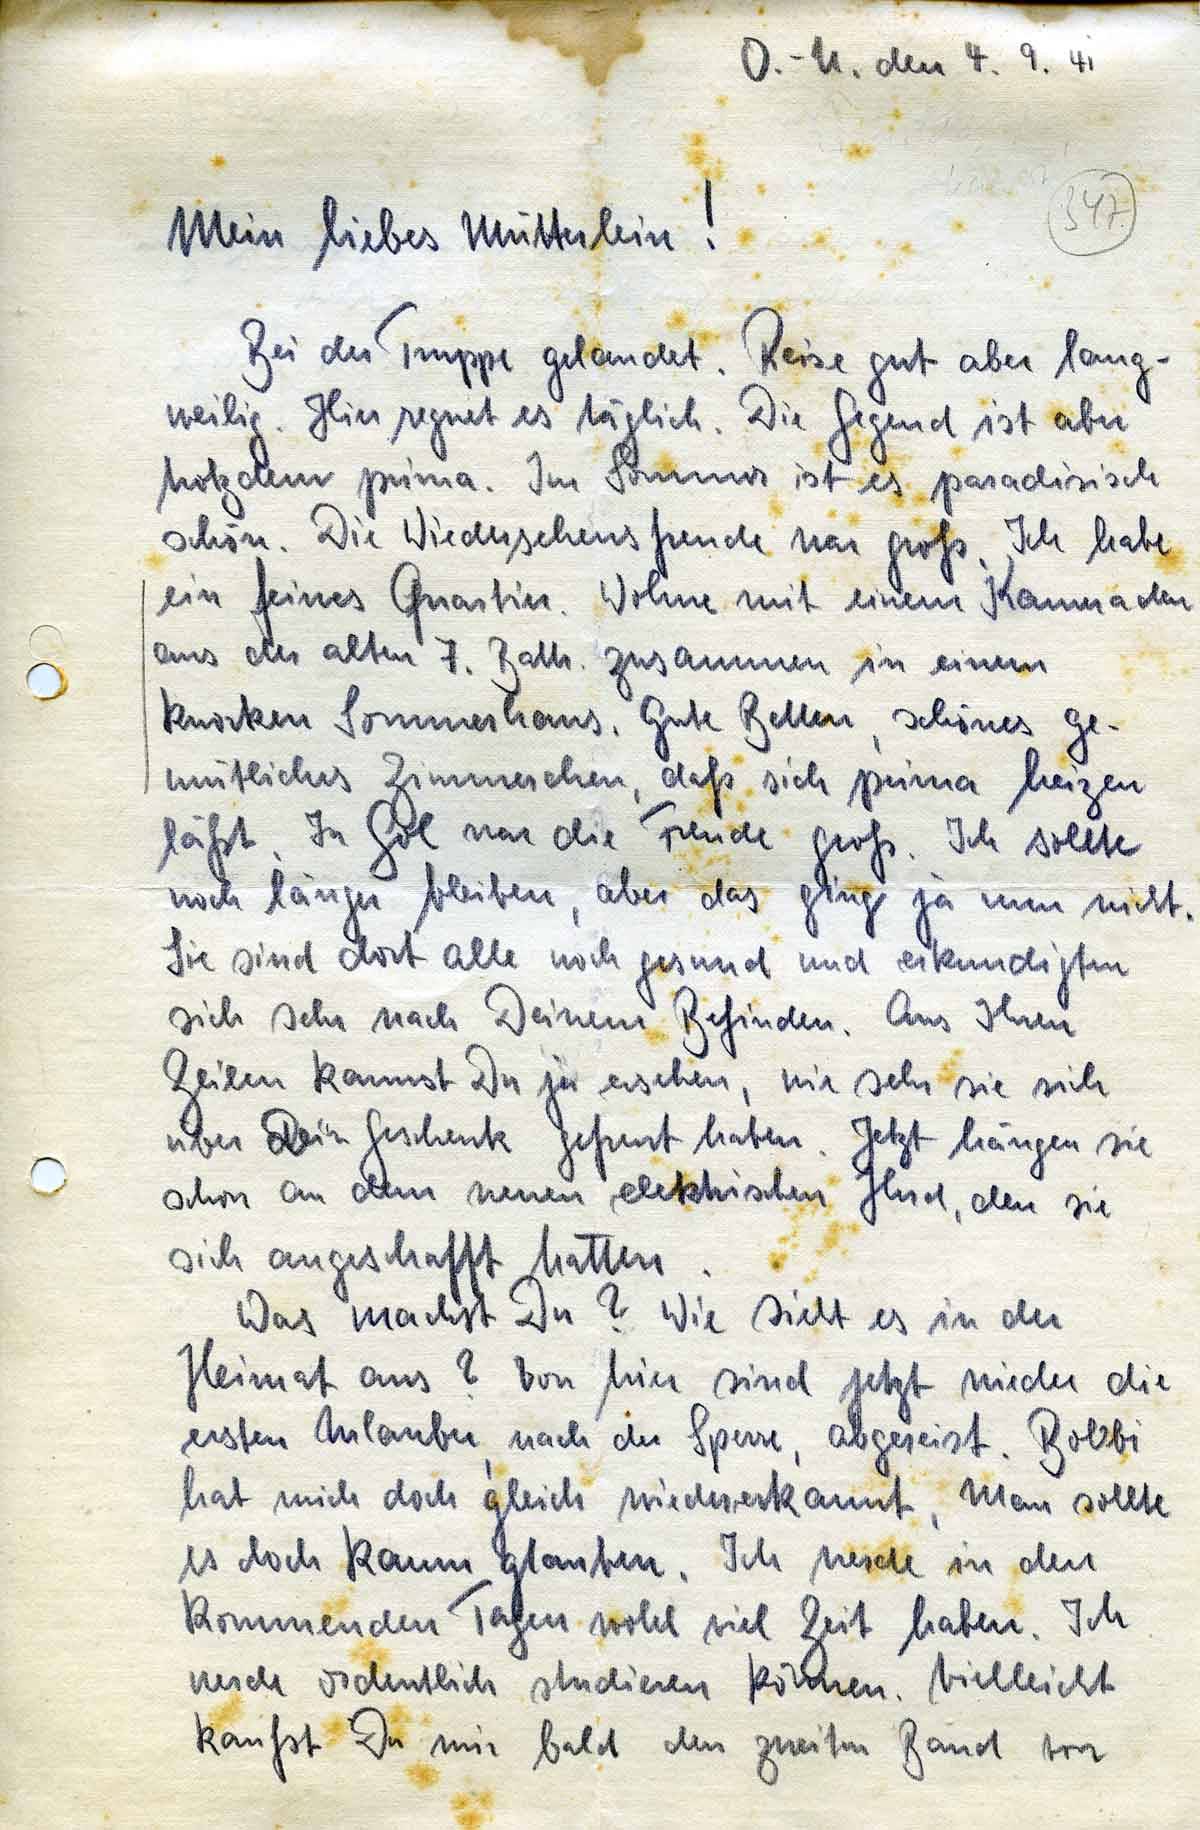 O.-U. den 4. 9. 41
347.
Mein liebes Mütterlein!
Bei der Truppe gelandet. Reise gut aber lang-
weilig. Hier regnet es täglich. Die Gegend ist aber
trotzdem prima. Im Sommer ist es paradisisch
schön. Die Wiedersehensfreude war groß. Ich habe
ein feines Quartier. Wohne mit einem Kameraden
aus der alten 7. Battr. zusammen in einem
knorken Sommerhaus. Gute Betten, schönes ge-
mütliches Zimmerchen, daß sich prima heizen
läßt. In Gol war die Freude groß. Ich sollte
noch länger bleiben, aber das ging ja nun nicht.
Sie sind dort alle noch gesund und erkundigten
sich sehr nach Deinem Befinden. Aus Ihren
Zeilen kannst Du ja ersehen, wie sehr sie sich
über Dein Geschenk gefreut haben. Jetzt hängen sie
schon an dem neuen elektrischen Herd, den sie
sich angeschafft hatten.
Was machst Du? Wie sieht es in der
Heimat aus? Von hier sind jetzt wieder die
ersten Urlauber, nach der Sperre, abgereist. Bobbi
hat mich doch gleich wiedererkannt, Man sollte
es doch kaum glauben. Ich werde in den
kommenden Tagen wohl viel Zeit haben. Ich
werde ordentlich studieren können. Vielleicht
kaufst Du mir bald den zweiten Band von